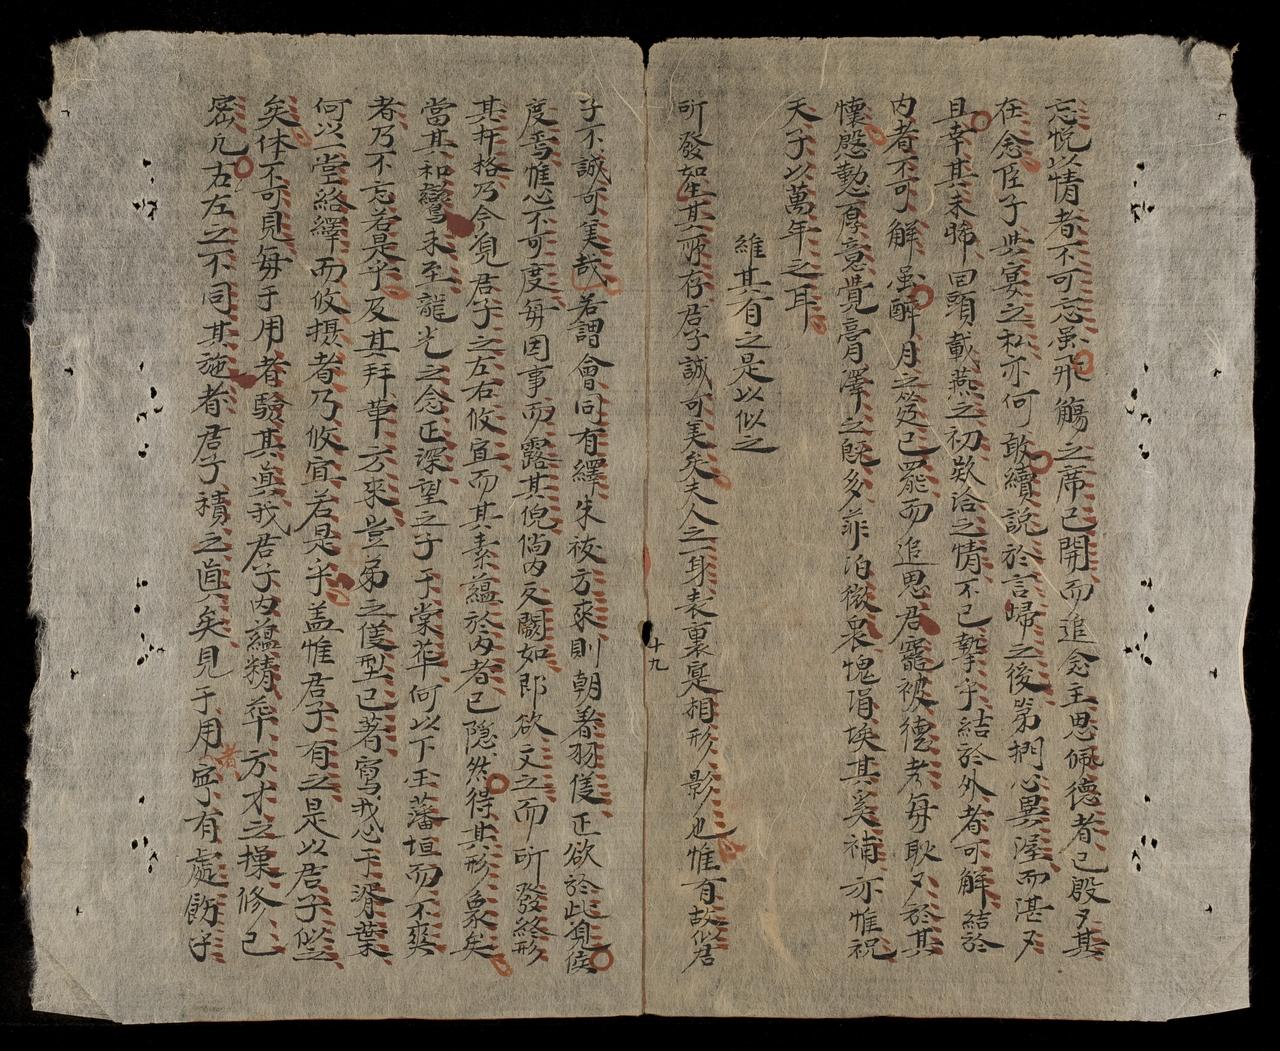 忘悅以情者不可忘虽飛觴之席已開而追念主思佩德者已殷夕其
在念臣子世冥之私亦何敢續說於言歸之後第捫心異渥而湛夕
且幸其未歸回頭載燕之初欵洽之情不已擊乎結於外者可解結於
内者不可解虽醉月之筵已罷而追思君寵被德者每耿夕於其
懷慇勤厚意覺膏澤之旣多菲泊微衷愧涓埃其奚補亦惟祝
天子以萬年之耳
維其有之是以似之
所發如主其所存君子誠可美矣夫人之一身表裏是相形影也惟有故似君
十九
子不誠可美哉若謂會同有繹朱祓方來則朝著羽儀正欲於此覓侯
度焉惟心不可度每因事而露其倪倘内反闕如即欲文之而所發終形
其扞格乃今覓君子之左右攸宜而其素蘊於内者已隱然得其形象矣
當其和鸞未至龍光之念正深望之子于棠華何以下玉藩垣而不爽
者乃不忘若是乎及其拜華方來豈弟之儀型已著寫我心于湑葉
何以一堂絡繹而攸摂者乃攸宜若是乎盖惟君子有之是以君子似之
矣体不可見每于用者驗其眞我君子内蘊精華方才之操修已
密凡右左之不同其施者君子積之眞矣見于用寧有處飭乎